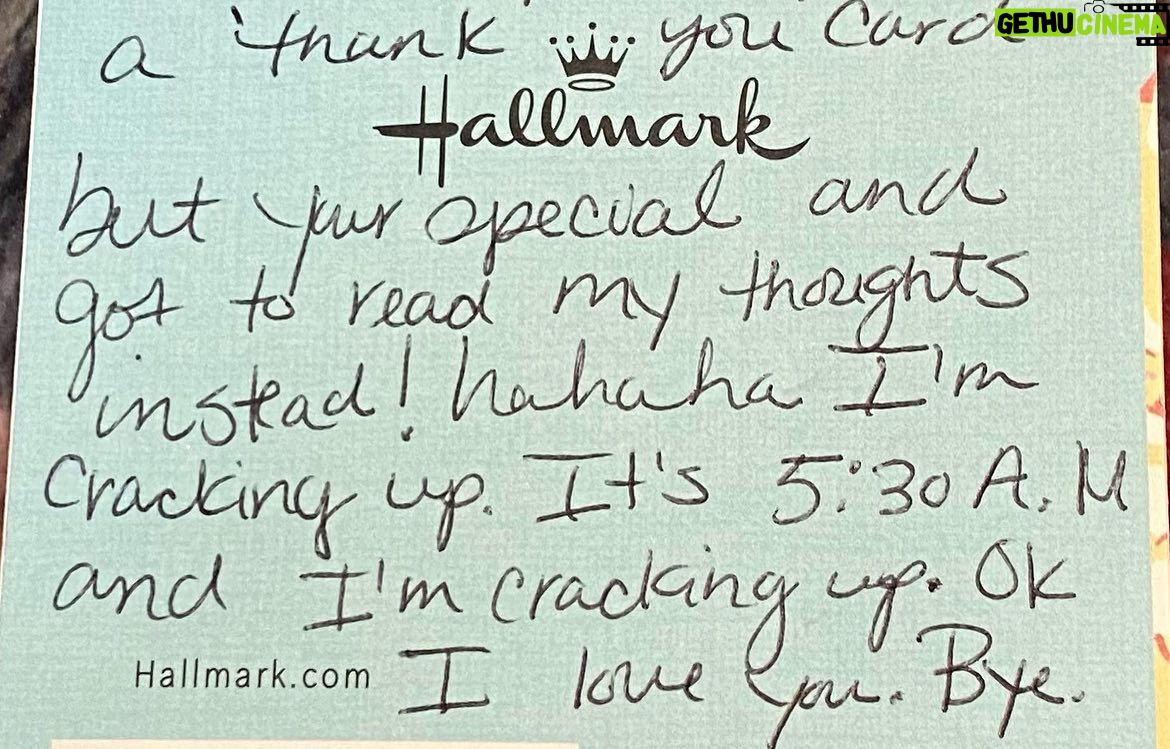 GETHU CINEMA
a thank you card
Hallmark
but your special and
got to read my thoughts
instead! hahaha I'm
Cracking up. It's 5:30 A.M
and I'm cracking up. Ok
Hallmark.com I love you. Bye.